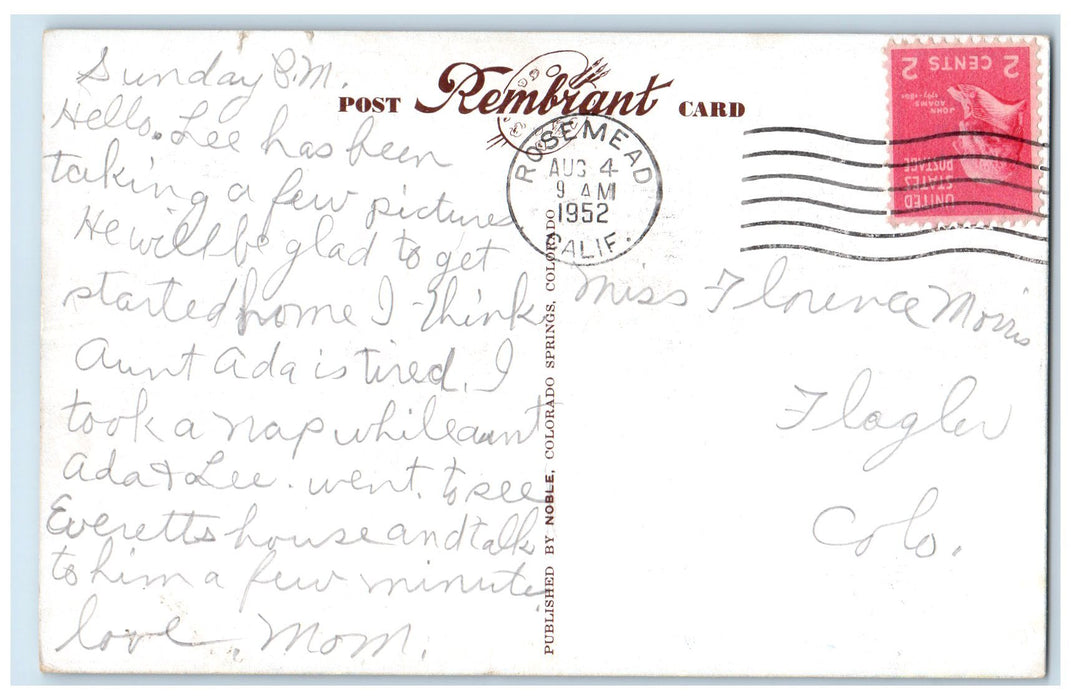 Sunday P.M.
Hello. Lee has been
taking a few pictures.
He will be glad to get
started home I think
Aunt Ada is tired. I
took a nap while aunt
Ada & Lee. went. to see
Everetts house and talk
to him a few minutes
love, Mom.
POST Rembrant CARD
ROSEMEAD
AUG 4
9 AM
1952
CALIF.
2 CENTS 2
JOHN
ADAMS
1797-1801
UNITED
STATES
POSTAGE
Miss Florence Morris
Flagler
Colo.
PUBLISHED BY NOBLE, COLORADO SPRINGS, COLORADO